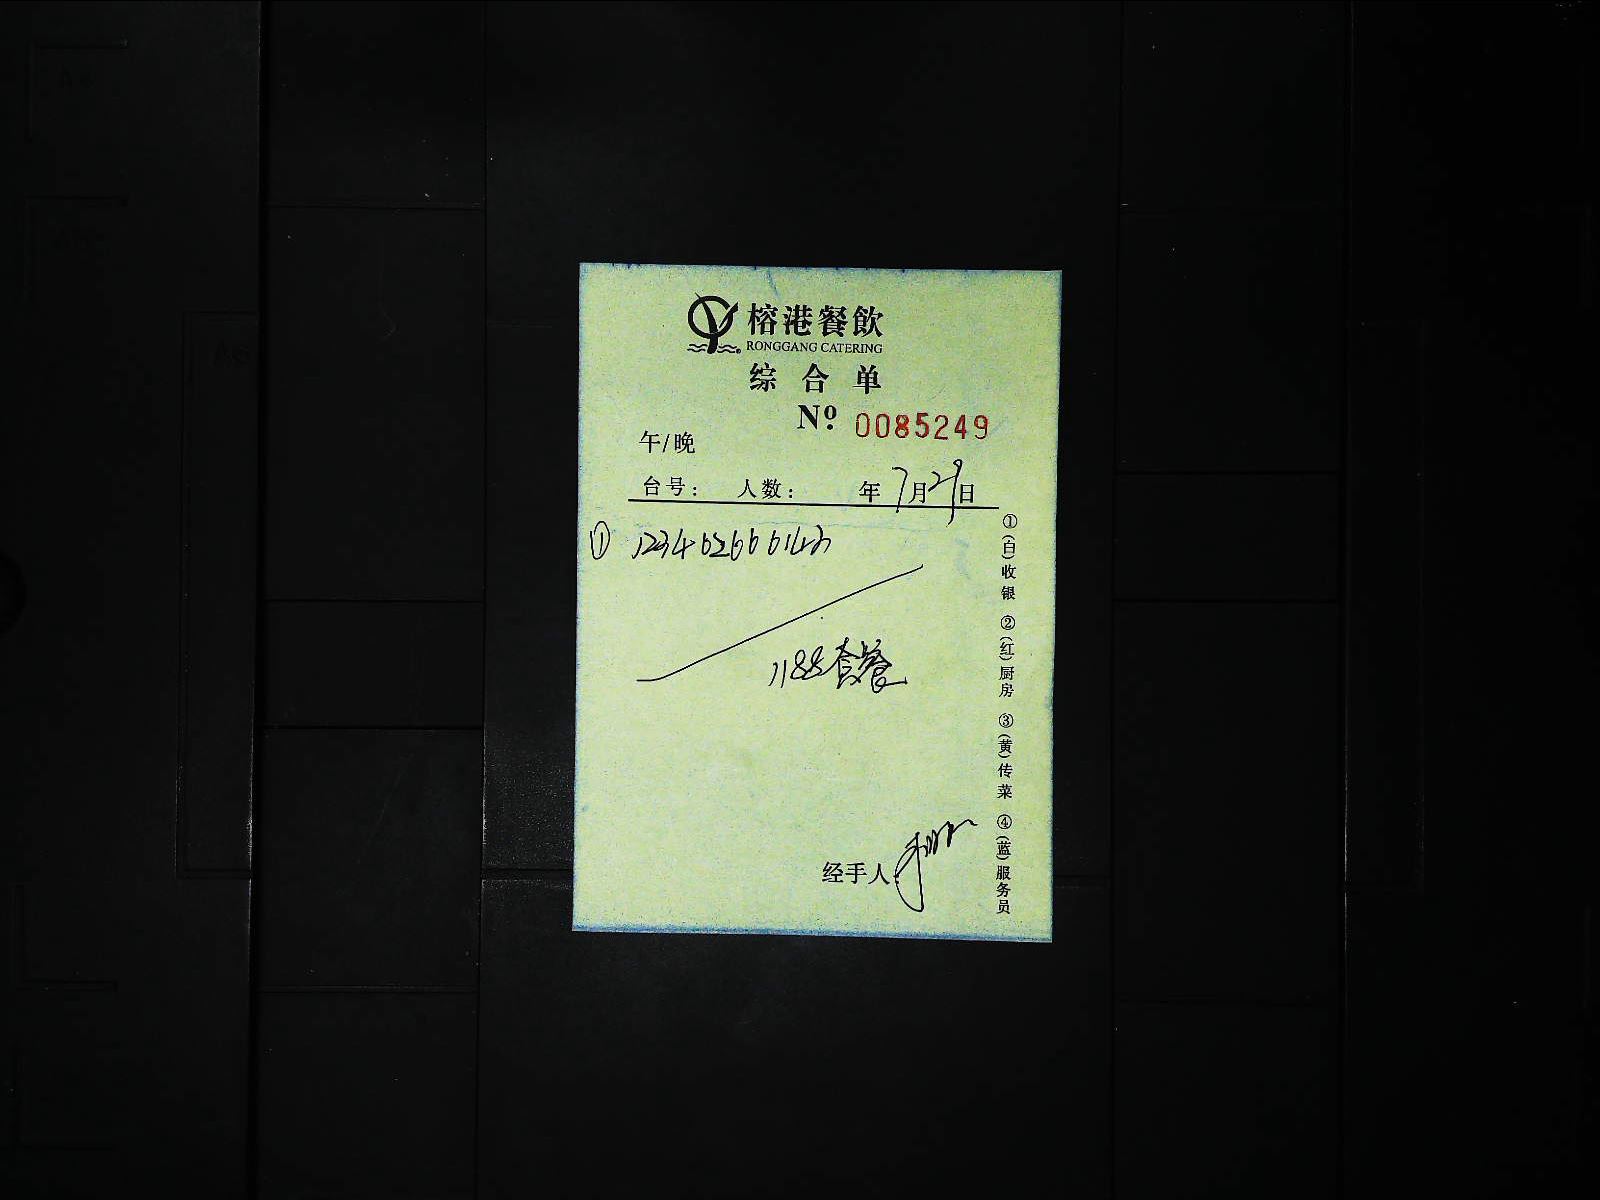 榕港餐飲
RONGGANG CATERING
综合单
Nº 0085249
午/晚
台号： 人数： 年7月29日
①
1188套餐
经手人
①(白)收银 ②(红)厨房 ③(黄)传菜 ④(蓝)服务员